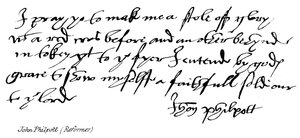 I pray yo to make me a stole off ij [...]
wt a red cros before and an other behynde
in token yt to ye [...] I entend by gods
grace to show myselfe a faithfull soldiour
to ye lord
Jhon Philpott
John Philpott (Reformer)